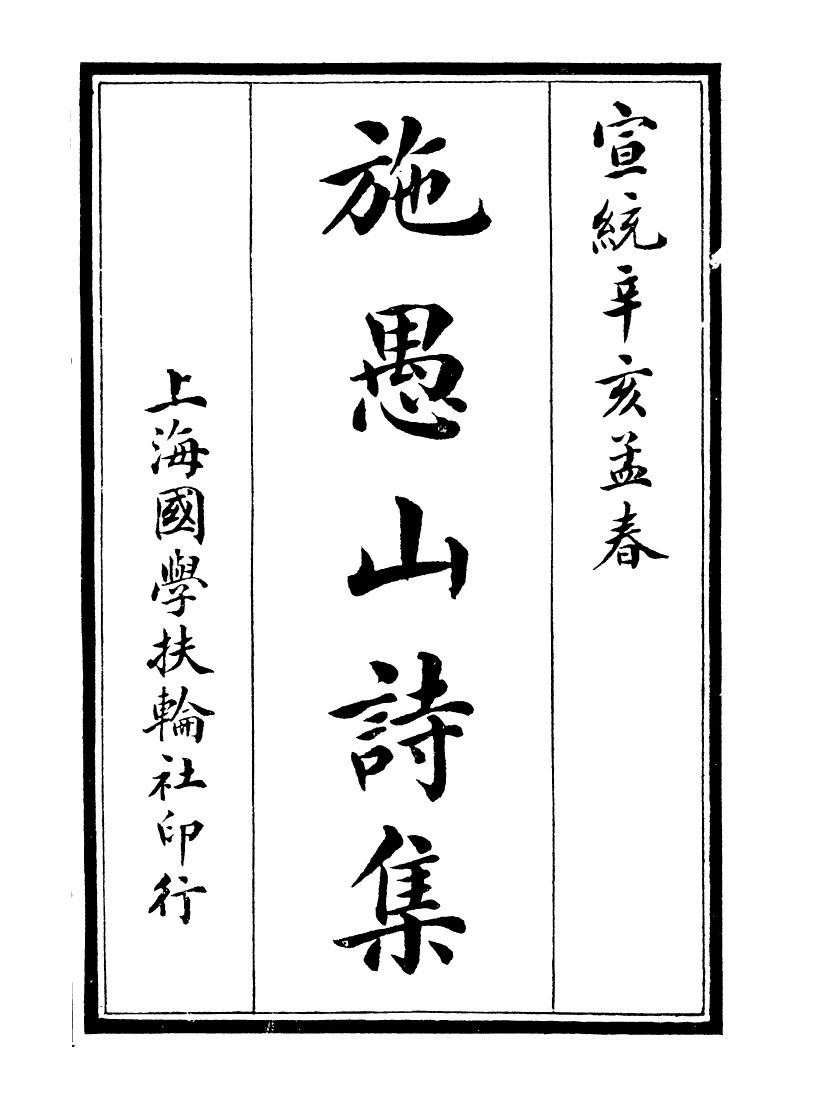 宣統辛亥孟春
施愚山詩集
上海國學扶輪社印行